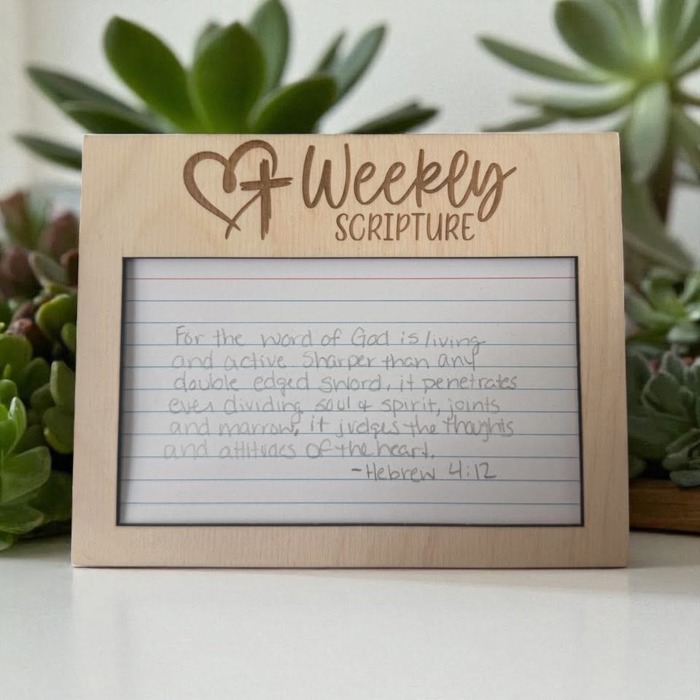 Weekly
SCRIPTURE
For the word of God is living
and active. Sharper than any
double edged sword, it penetrates
even dividing soul & spirit, joints
and marrow, it judges the thoughts
and attitudes of the heart.
-Hebrew 4:12